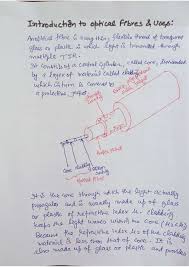 Introduction to optical Fibres & Uses:
An optical fibre is a very thin, flexible thread of transparent
glass or plastic in which light is transmitted through
multiple TIR.
It consists of a central cylinder, called core, surrounded
by a layer of material called cladding,
which in turn is covered by
a protective jacket.
core cladding
It is the core through which the light actually
propagates and is usually made up of glass
or plastic of refractive index μ. cladding
keeps the light waves within the core
Because the refractive index of the cladding
material is less than that of core. It is
also made up of glass or plastic and provides